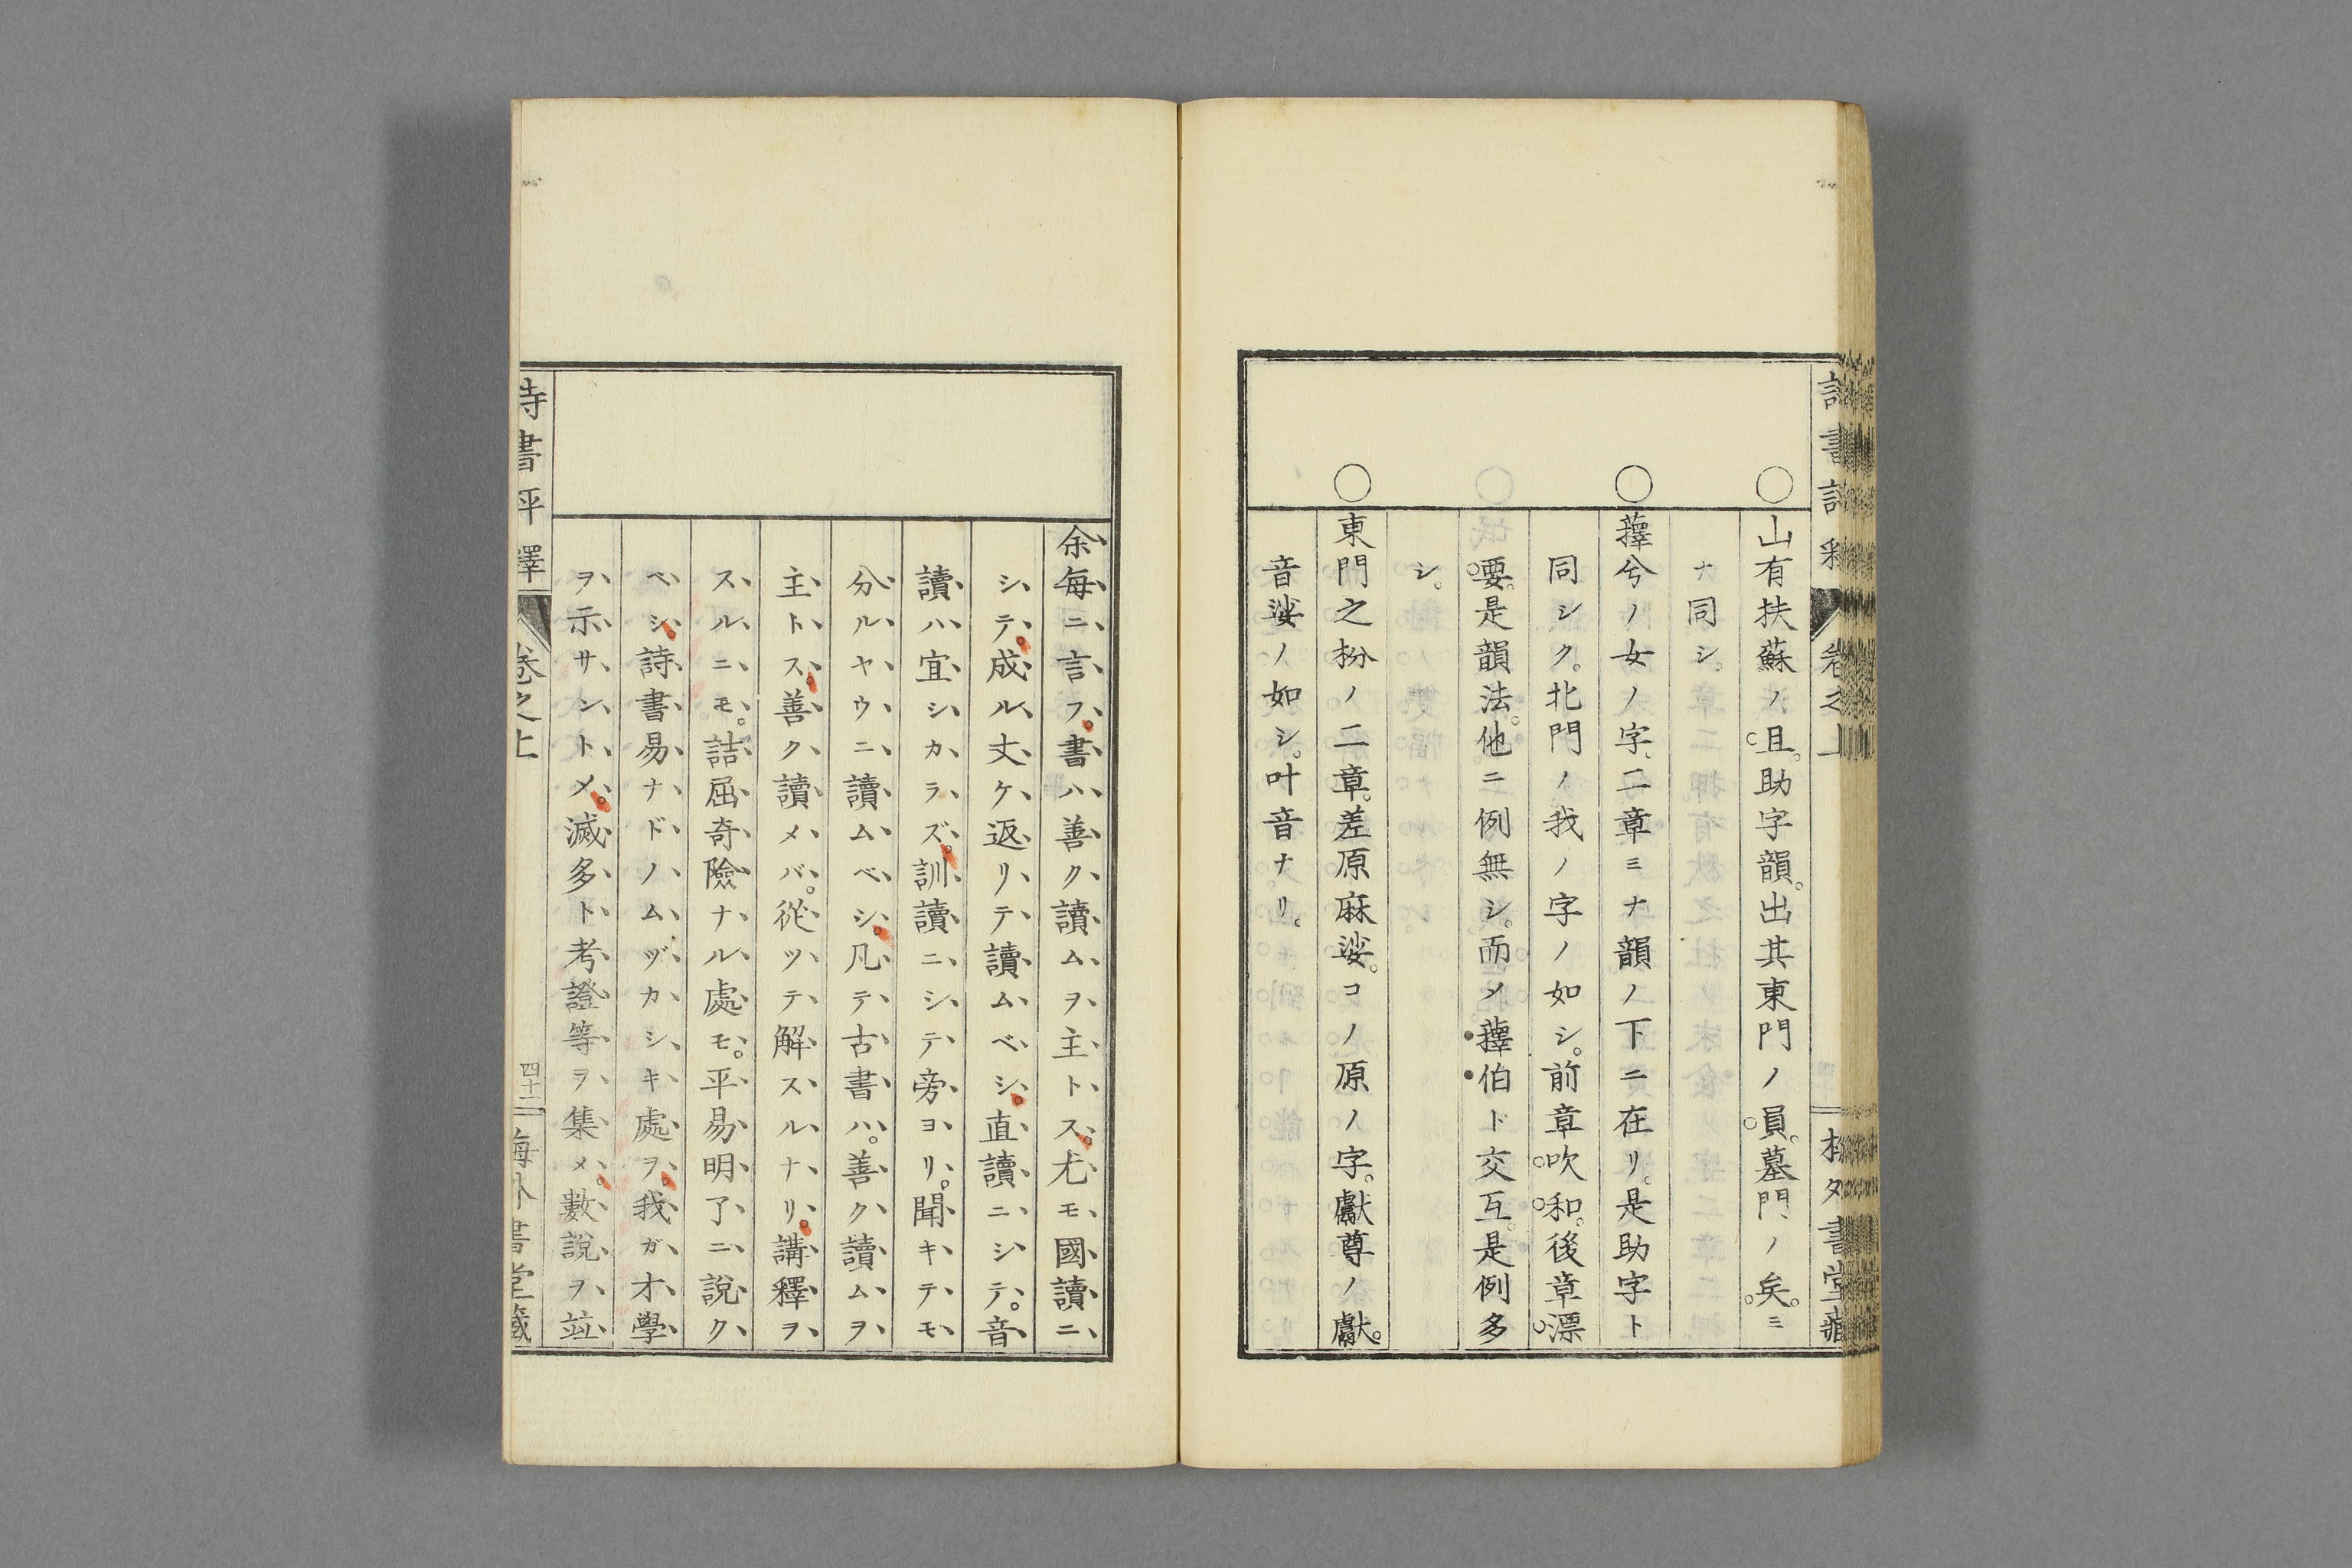 山有扶蘇ノ且。助字韻。出其東門ノ員。墓門ノ矣。ミ
ナ同シ。
蘀兮ノ女ノ字。二章ミナ韻ノ下ニ在リ。是助字ト
同シク。北門ノ我ノ字ノ如シ。前章吹和。後章漂
要。是韻法。他ニ例無シ。而メ蘀伯ド交互。是例多
シ。
東門之枌ノ二章。差原麻娑。コノ原ノ字。獻尊ノ獻。
音娑ノ如シ。叶音ナリ。
余毎ニ言フ。書ハ善ク讀ムヲ主トス。尤モ國讀ニ
シテ。成ル丈ケ返リテ讀ムベシ。直讀ニシテ。音
讀ハ宜シカラズ。訓讀ニシテ旁ヨリ。聞キテモ
分ルヤウニ讀ムベシ。凡テ古書ハ。善ク讀ムヲ
主トス。善ク讀メバ。從ツテ解スルナリ。講釋ヲ
スルニモ。詰屈奇險ナル處モ。平易明了ニ説ク
ベシ。詩書易ナドノムヅカシキ處ヲ。我ガ才學
ヲ示サントメ。滅多ト考證等ヲ集メ。數説ヲ竝
詩書評釋 卷之上 四十二 梅外書堂藏